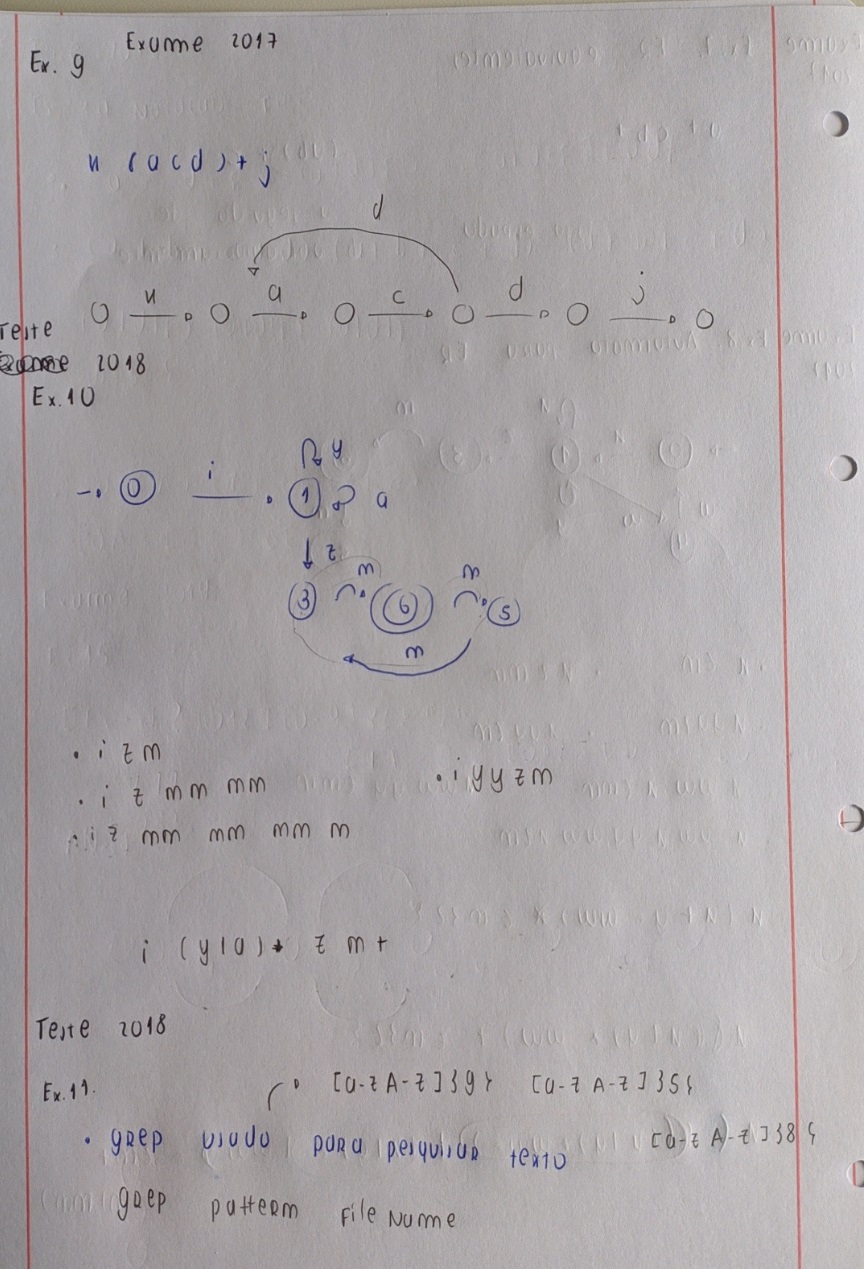 Exame 2017
Ex. 9
u (acd)+ j
d
u a c d j
Teste
2018
Ex. 10
y
i
0 1 a
z
m m
3 6 5
m
• i z m
• i y y z m
• i z mm mm
• i z mm mm mm m
i (y|a)* z m+
Teste 2018
Ex. 11.
[a-z A-Z]{9} [a-z A-Z]{5}
• grep usado para pesquisar texto [a-z A-Z]{8}
grep pattern File Name